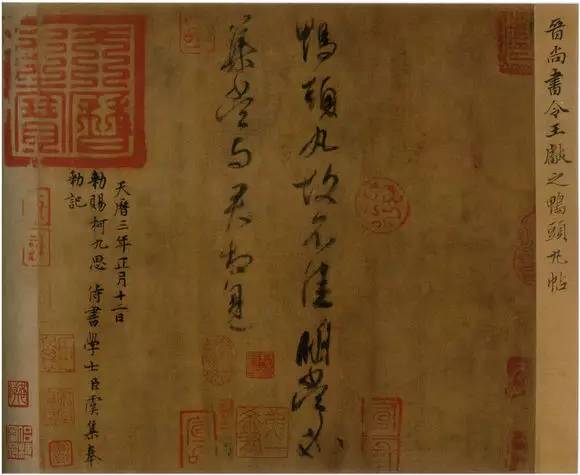 晉尚書令王獻之鴨頭丸帖
鴨頭丸故不佳明當必
集當與君相見
天曆三年正月十二日
勅賜柯九思侍書學士臣虞集奉
勅記
天曆
之寶